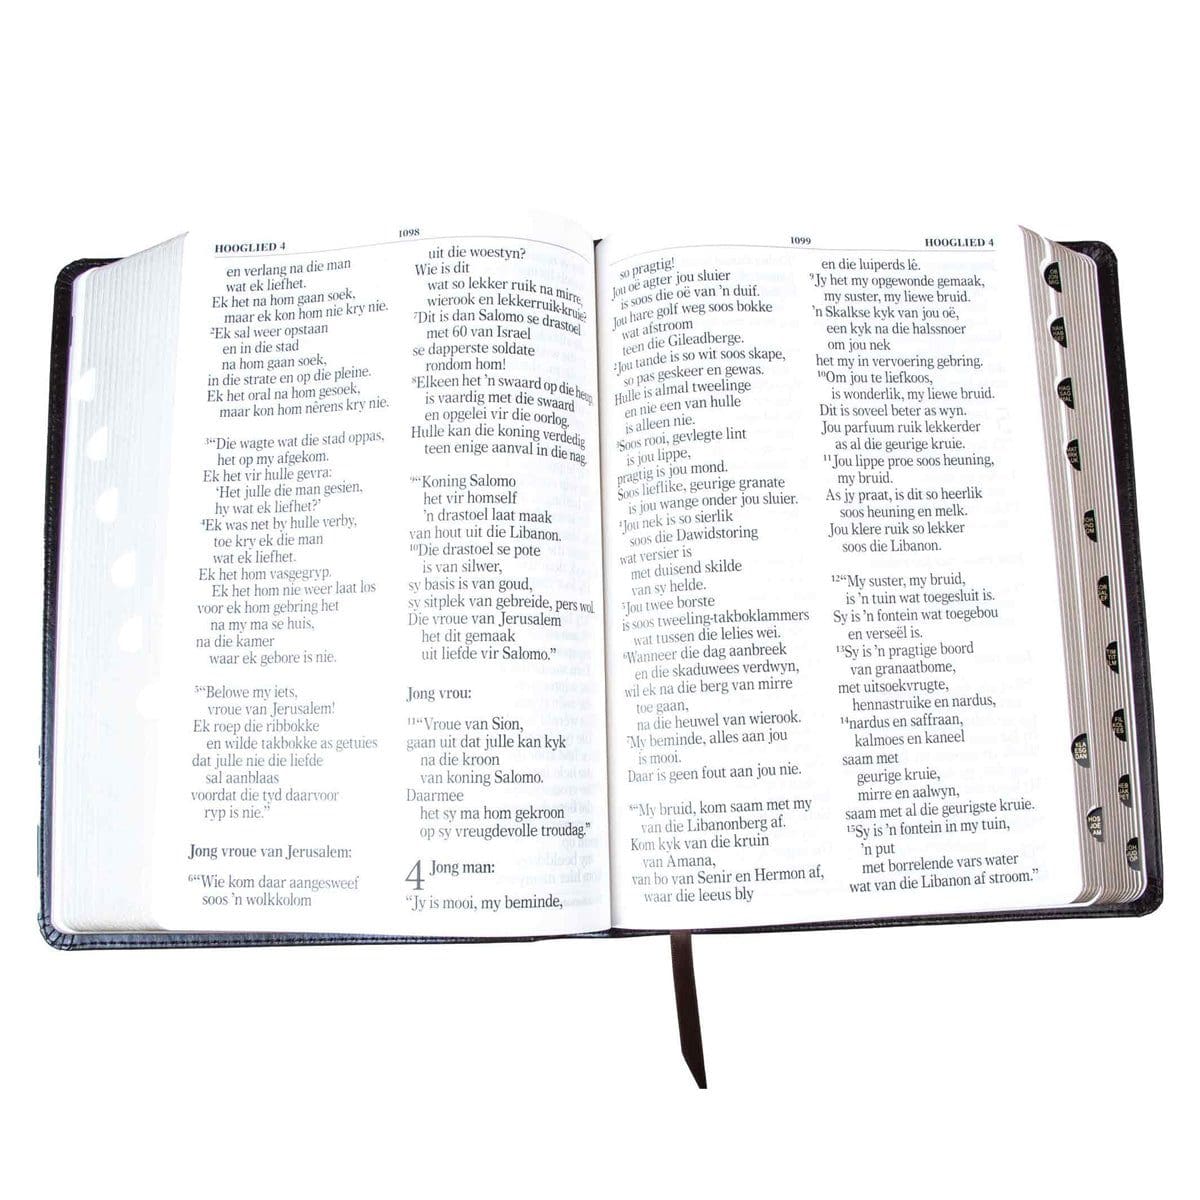 HOOGLIED 4
1098
en verlang na die man
wat ek liefhet.
Ek het na hom gaan soek,
maar ek kon hom nie kry nie.
²Ek sal weer opstaan
en in die stad
na hom gaan soek,
in die strate en op die pleine.
Ek het oral na hom gesoek,
maar kon hom nêrens kry nie.
³“Die wagte wat die stad oppas,
het op my afgekom.
Ek het vir hulle gevra:
‘Het julle die man gesien,
hy wat ek liefhet?’
⁴Ek was net by hulle verby,
toe kry ek die man
wat ek liefhet.
Ek het hom vasgegryp.
Ek het hom nie weer laat los
voor ek hom gebring het
na my ma se huis,
na die kamer
waar ek gebore is nie.
⁵“Belowe my iets,
vroue van Jerusalem!
Ek roep die ribbokke
en wilde takbokke as getuies
dat julle nie die liefde
sal aanblaas
voordat die tyd daarvoor
ryp is nie.”
Jong vroue van Jerusalem:
⁶“Wie kom daar aangesweef
soos ’n wolkkolom
uit die woestyn?
Wie is dit
wat so lekker ruik na mirre,
wierook en lekkerruik-kruie?
⁷Dit is dan Salomo se drastoel
met 60 van Israel
se dapperste soldate
rondom hom!
⁸Elkeen het ’n swaard op die heup,
is vaardig met die swaard
en opgelei vir die oorlog.
Hulle kan die koning verdedig
teen enige aanval in die nag.
⁹“Koning Salomo
het vir homself
’n drastoel laat maak
van hout uit die Libanon.
¹⁰Die drastoel se pote
is van silwer,
sy basis is van goud,
sy sitplek van gebreide, pers wol.
Die vroue van Jerusalem
het dit gemaak
uit liefde vir Salomo.”
Jong vrou:
¹¹“Vroue van Sion,
gaan uit dat julle kan kyk
na die kroon
van koning Salomo.
Daarmee
het sy ma hom gekroon
op sy vreugdevolle troudag.”
4 Jong man:
“Jy is mooi, my beminde,
1099
HOOGLIED 4
so pragtig!
Jou oë agter jou sluier
is soos die oë van ’n duif.
Jou hare golf weg soos bokke
wat afstroom
teen die Gileadberge.
²Jou tande is so wit soos skape,
so pas geskeer en gewas.
Hulle is almal tweelinge
en nie een van hulle
is alleen nie.
³Soos rooi, gevlegte lint
is jou lippe,
pragtig is jou mond.
Soos lieflike, geurige granate
is jou wange onder jou sluier.
⁴Jou nek is so sierlik
soos die Dawidstoring
wat versier is
met duisend skilde
van sy helde.
⁵Jou twee borste
is soos tweeling-takboklammers
wat tussen die lelies wei.
⁶Wanneer die dag aanbreek
en die skaduwees verdwyn,
wil ek na die berg van mirre
toe gaan,
na die heuwel van wierook.
⁷My beminde, alles aan jou
is mooi.
Daar is geen fout aan jou nie.
⁸“My bruid, kom saam met my
van die Libanonberg af.
Kom kyk van die kruin
van Amana,
van bo van Senir en Hermon af,
waar die leeus bly
en die luiperds lê.
⁹Jy het my opgewonde gemaak,
my suster, my liewe bruid.
’n Skalkse kyk van jou oë,
een kyk na die halssnoer
om jou nek
het my in vervoering gebring.
¹⁰Om jou te liefkoos,
is wonderlik, my liewe bruid.
Dit is soveel beter as wyn.
Jou parfuum ruik lekkerder
as al die geurige kruie.
¹¹Jou lippe proe soos heuning,
my bruid.
As jy praat, is dit so heerlik
soos heuning en melk.
Jou klere ruik so lekker
soos die Libanon.
¹²“My suster, my bruid,
is ’n tuin wat toegesluit is.
Sy is ’n fontein wat toegebou
en verseël is.
¹³Sy is ’n pragtige boord
van granaatbome,
met uitsoekvrugte,
hennastruike en nardus,
¹⁴nardus en saffraan,
kalmoes en kaneel
saam met
geurige kruie,
mirre en aalwyn,
saam met al die geurigste kruie.
¹⁵Sy is ’n fontein in my tuin,
’n put
met borrelende vars water
wat van die Libanon af stroom.”
KLA
ESG
DAN
HOS
JOE
AM